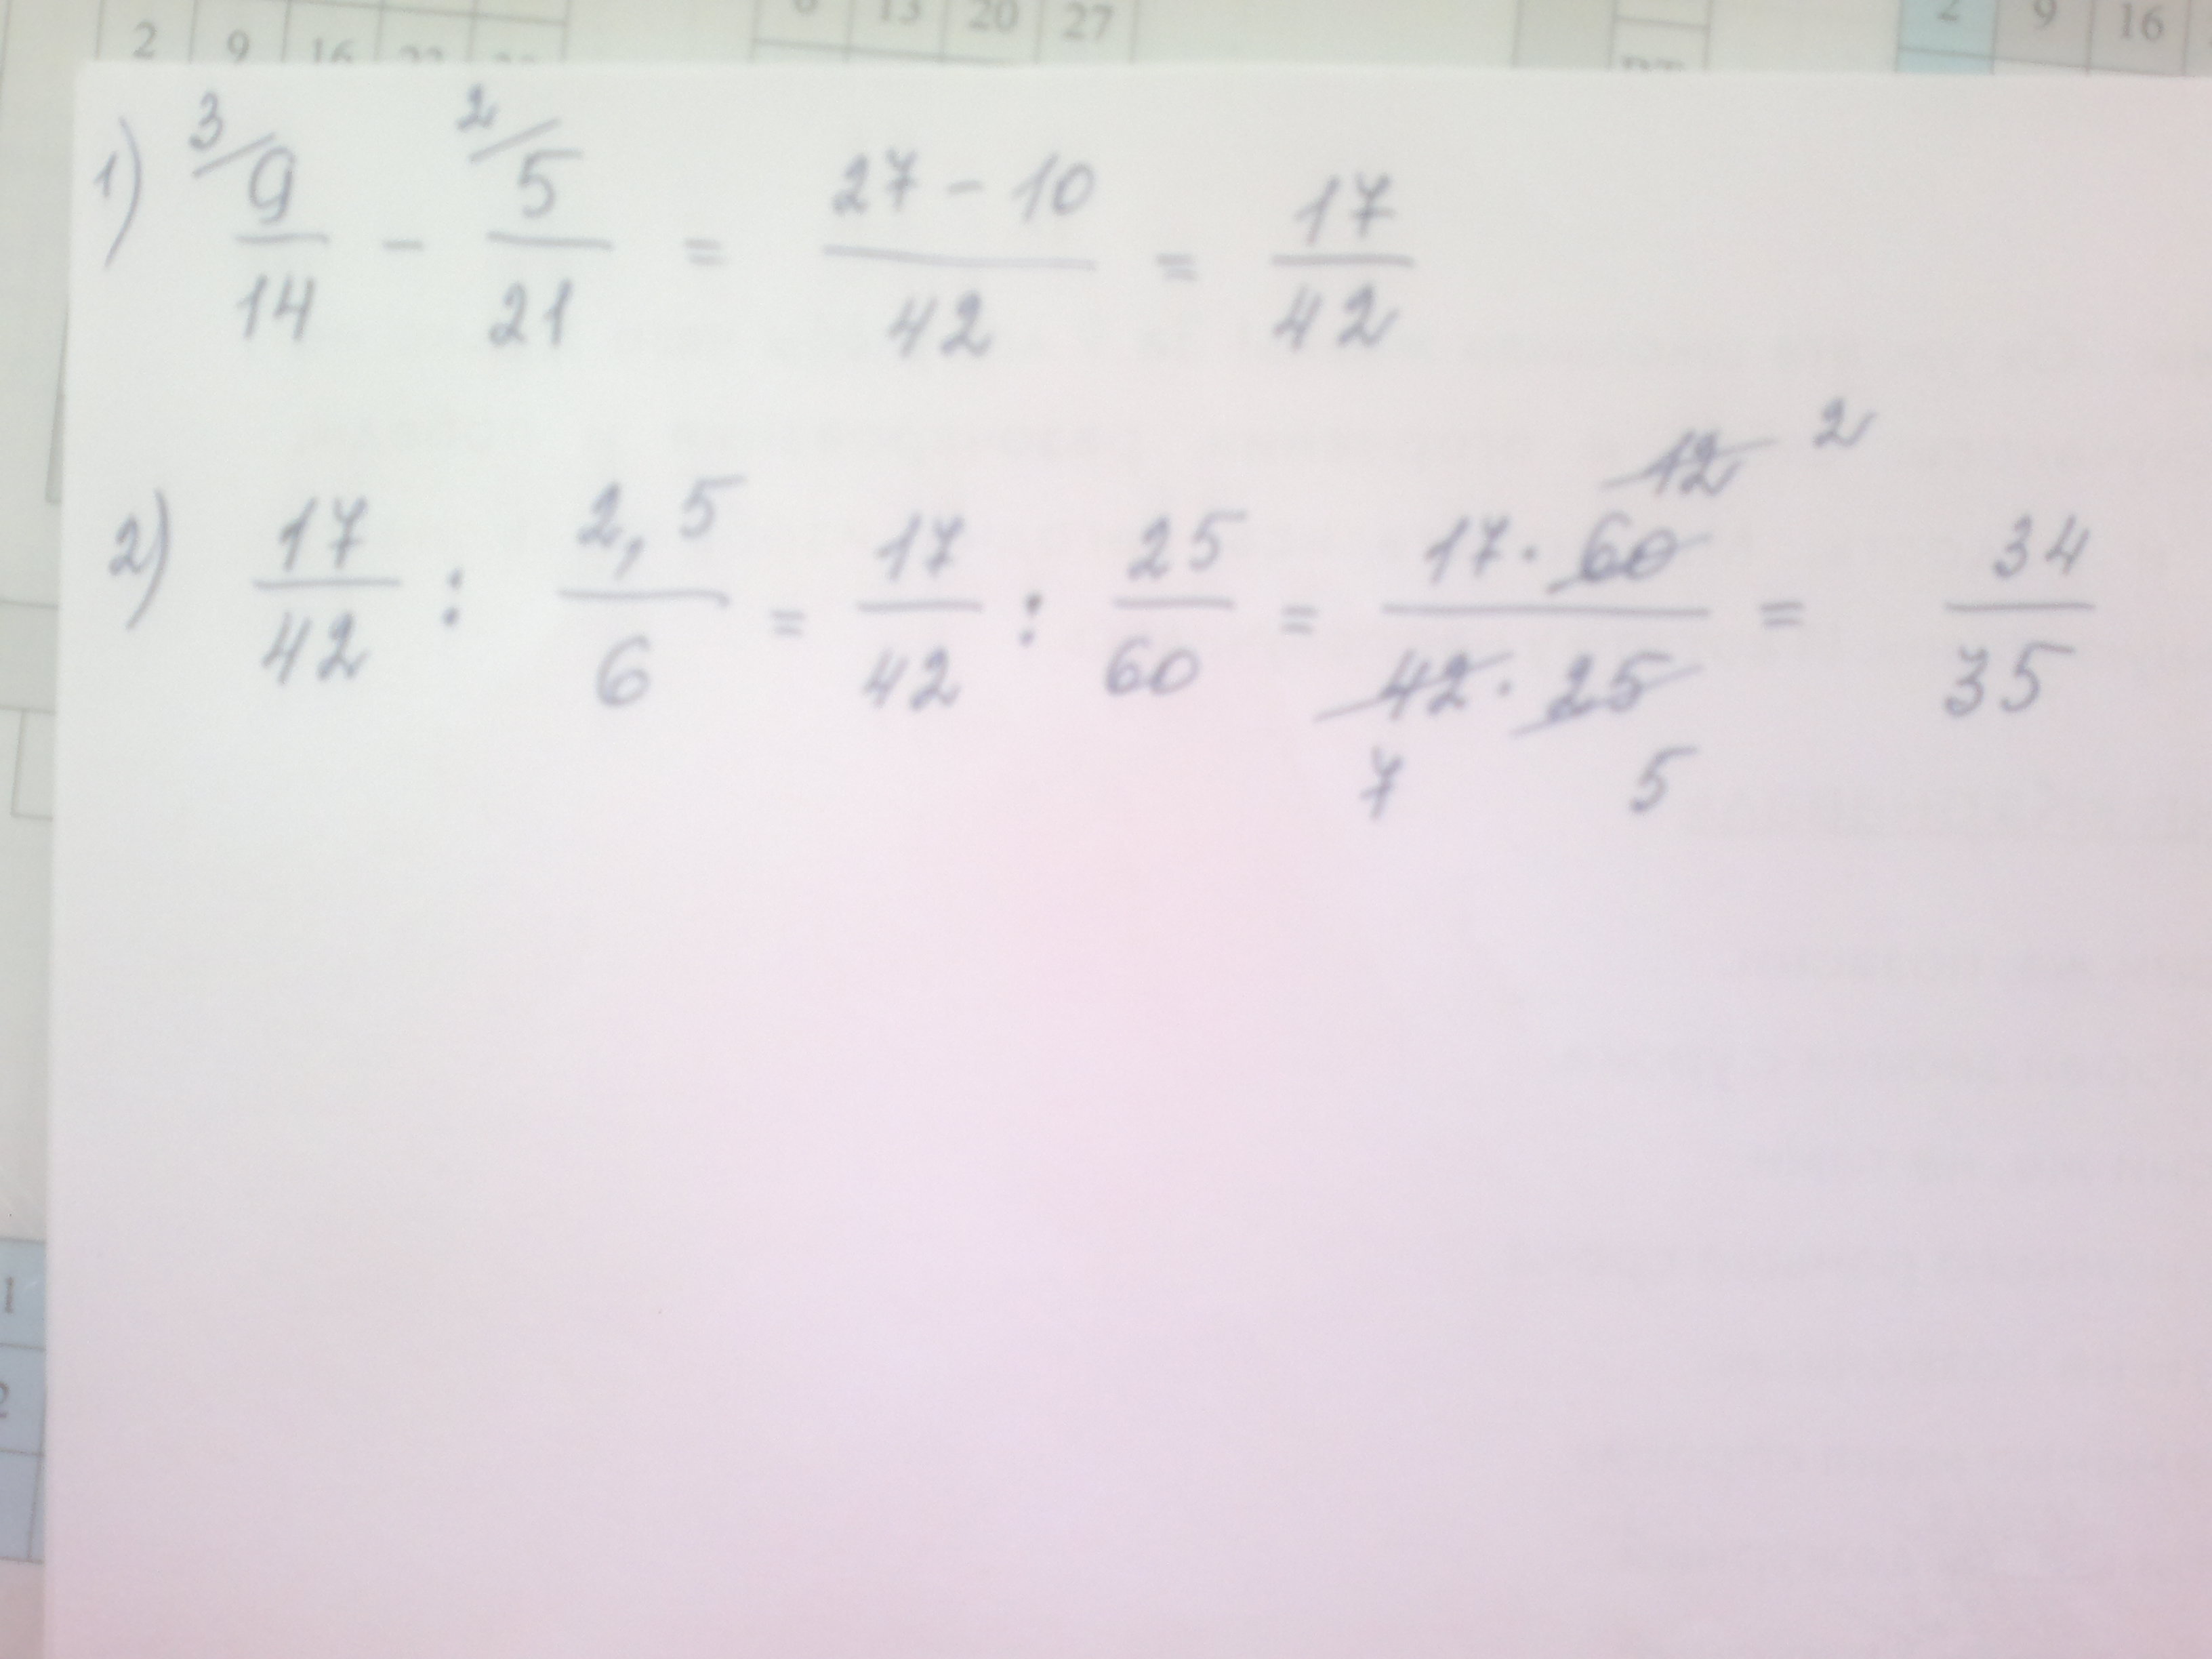 2 9 16
6 13 20 27
2 9 16
1) 3/ 9/14 - 2/ 5/21 = 27 - 10/42 = 17/42
2) 17/42 : 2,5/6 = 17/42 : 25/60 = 17 · 60/42 · 25 = 34/35
12 2
7 5
1
2